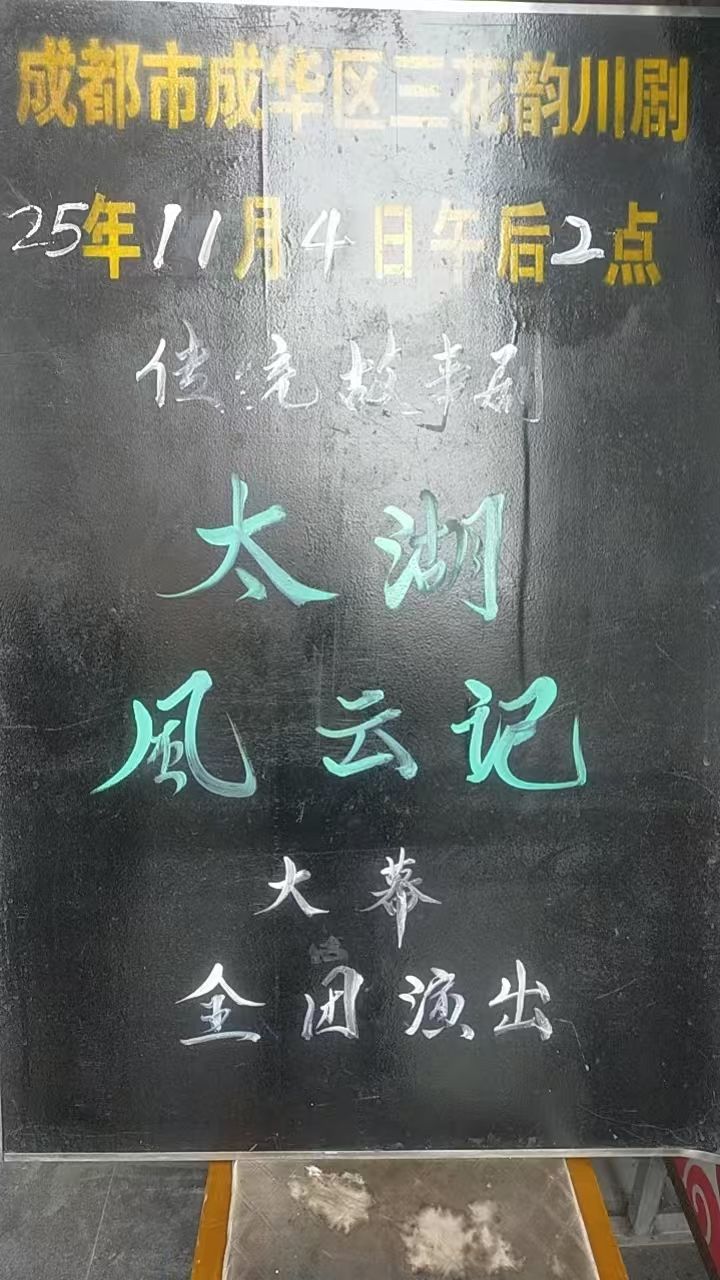 成都市成华区三花韵川剧
25年11月4日午后2点
传统故事剧
太湖
風云记
大幕
全团演出